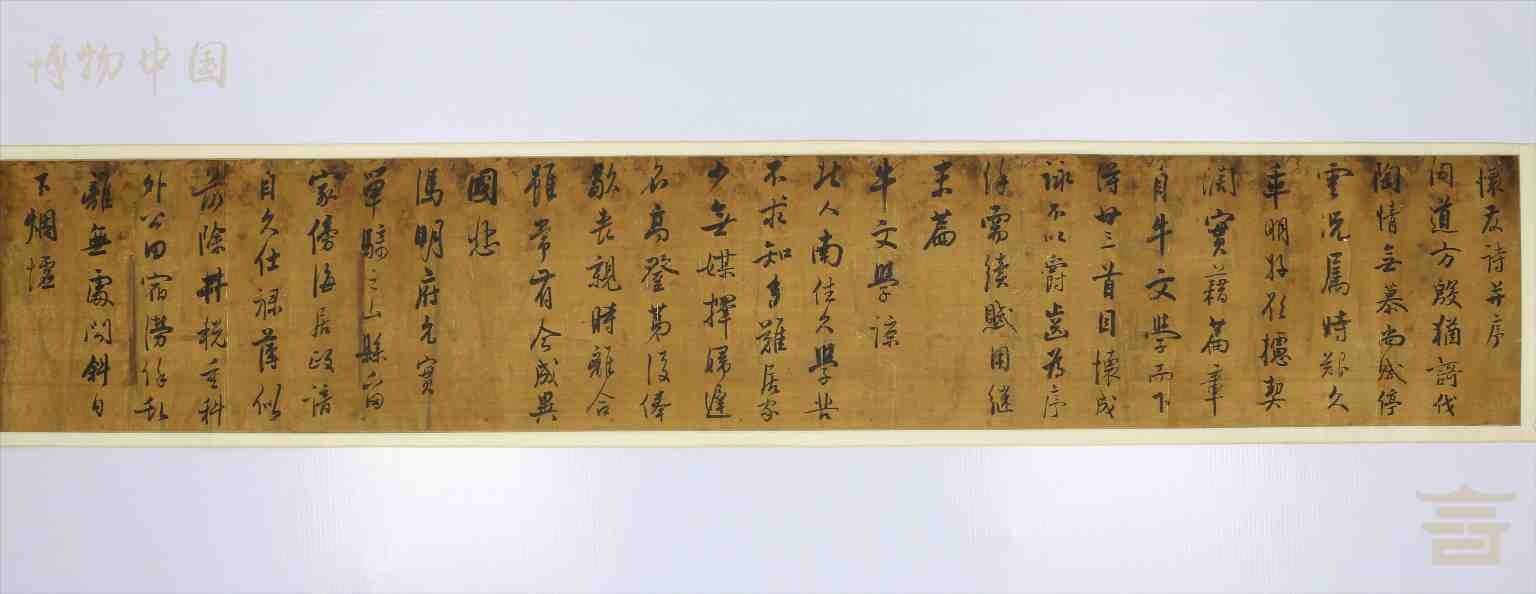 懷友詩并序
向道方殷猶謌伐
陶情無慕尚感停
雲況屬時艱久
車明好徒攄契
闊實藉篇章
自牛文學而下
得廿三首目懷成
詠不以爵齒為序
餘需續賦用繼
末篇
牛文學諒
北人南住久學苦
不求知身難居家
少無媒擇婦遲
名高登薦後俸
歇喪親時離合
雖常有今成異
國悲
馮明府允實
單騎之山縣留
家傍海居政諳
自久仕祿薄似
前除耕稅重科
外公田宿澇餘
離無處問斜日
下烟
博物中國